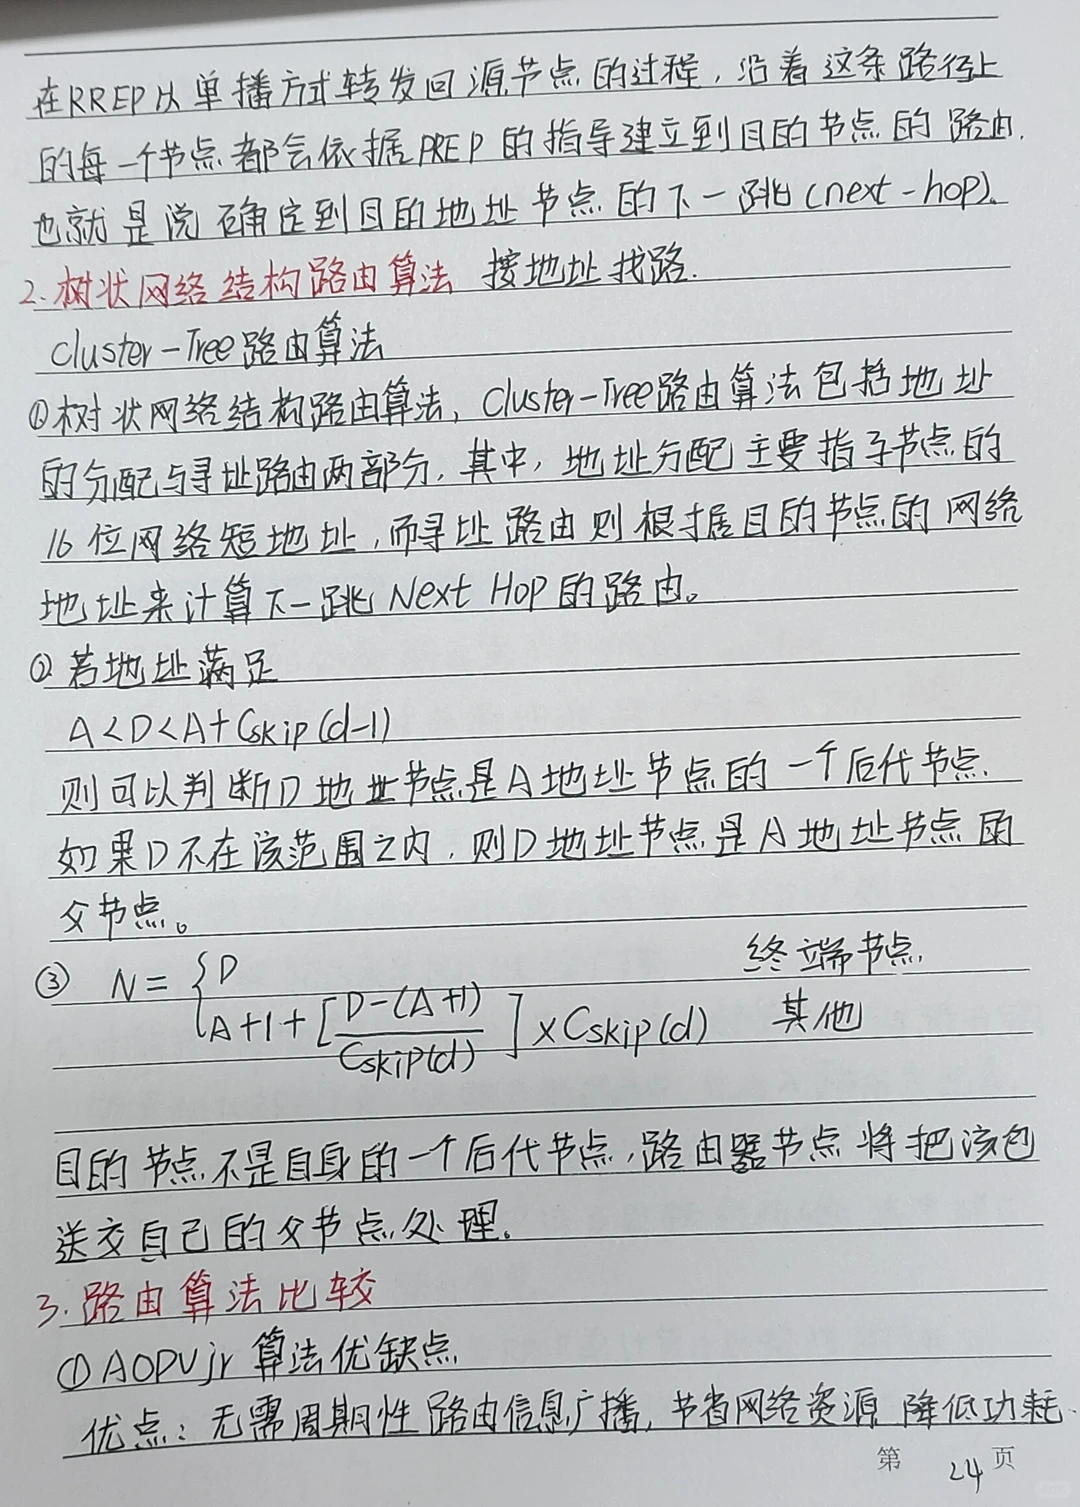 在RREP以单播方式转发回源节点的过程，沿着这条路径上
的每一个节点都会依据PREP的指导建立到目的节点的路由.
也就是说确定到目的地址节点的下一跳(next-hop)。
2.树状网络结构路由算法 按地址找路.
Cluster-Tree路由算法
①树状网络结构路由算法，Cluster-Tree路由算法包括地址
的分配与寻址路由两部分，其中，地址分配主要指子节点的
16位网络短地址，而寻址路由则根据目的节点的网络
地址来计算下一跳Next Hop的路由。
②若地址满足
A<D<A+Cskip(d-1)
则可以判断D地址节点是A地址节点的一个后代节点.
如果D不在该范围之内，则D地址节点是A地址节点的
父节点。
③ N={D 终端节点
A+1+[D-(A+1)/Cskip(d)]×Cskip(d) 其他
目的节点不是自身的一个后代节点，路由器节点将把该包
送交自己的父节点处理.
3.路由算法比较
①AODVjr算法优缺点
优点：无需周期性路由信息广播，节省网络资源 降低功耗.
第24页